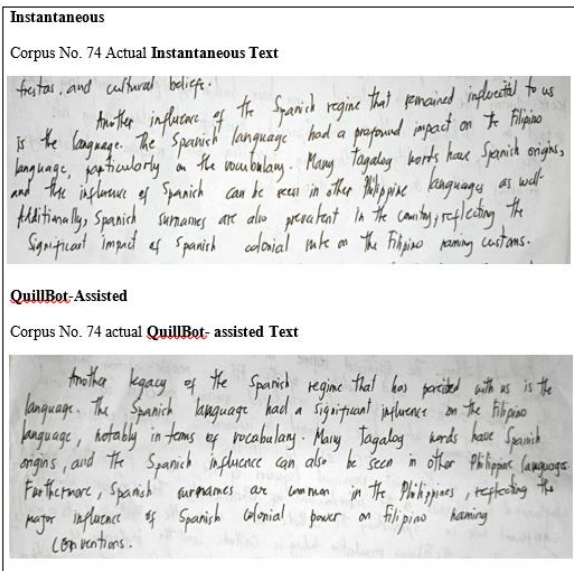 Instantaneous
Corpus No. 74 Actual Instantaneous Text
fiestas, and cultural beliefs.
Another influence of the Spanish regime that remained influential to us
is the language. The Spanish language had a profound impact on the Filipino
language, particularly on the vocabulary. Many Tagalog words have Spanish origins,
and the influence of Spanish can be seen in other Philippine languages as well.
Additionally, Spanish surnames are also prevalent in the country, reflecting the
significant impact of Spanish colonial rule on the Filipino naming customs.
QuillBot-Assisted
Corpus No. 74 actual QuillBot- assisted Text
Another legacy of the Spanish regime that has persisted with us is the
language. The Spanish language had a significant influence on the Filipino
language, notably in terms of vocabulary. Many Tagalog words have Spanish
origins, and the Spanish influence can also be seen in other Philippine languages.
Furthermore, Spanish surnames are common in the Philippines, reflecting the
major influence of Spanish colonial power on Filipino naming
conventions.